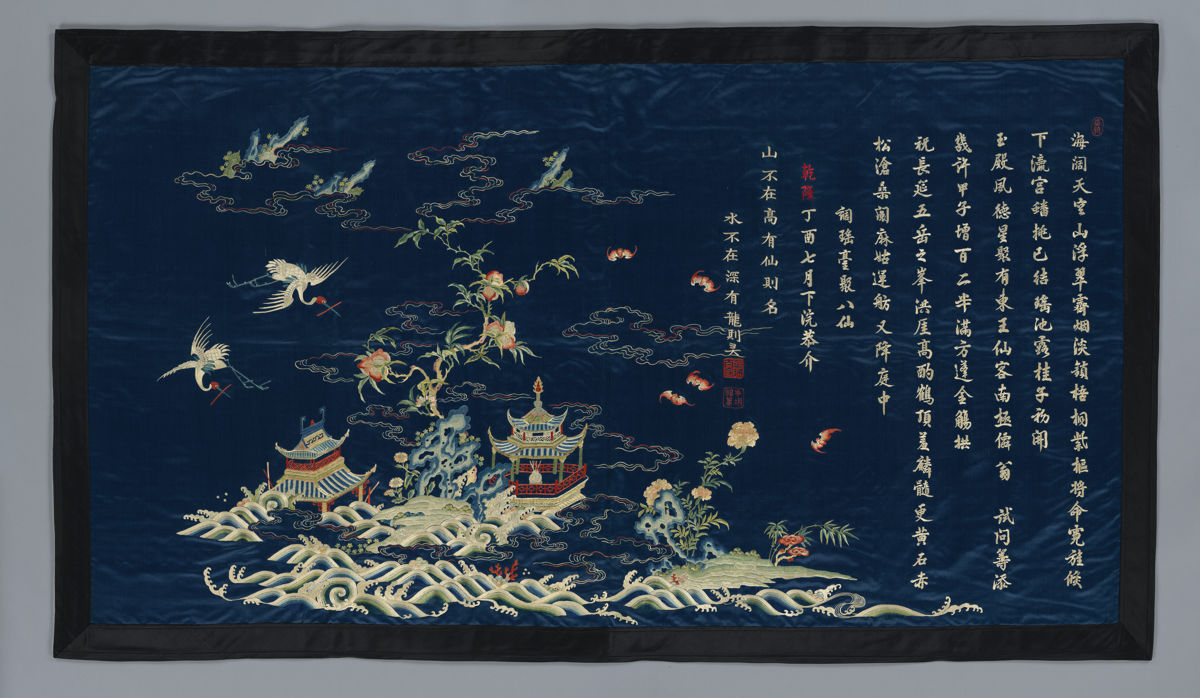 海阔天空山浮翠霽烟淡頴梧桐紫樞將命霓旌倏
下瀛宮蟠桃已結瑤池露桂子初開
玉殿風德星聚有東王仙客南極儒翁 試問籌添
幾許甲子增百二半滿方蓬金觴拱
祝長延五岳之峯洪崖高酌鶴頂羞麟髓更黃石赤
松滄桑閱麻姑運舫又降庭中
調瑤臺聚八仙
乾隆丁酉七月下浣恭介
山不在高有仙則名
水不在深有龍則灵